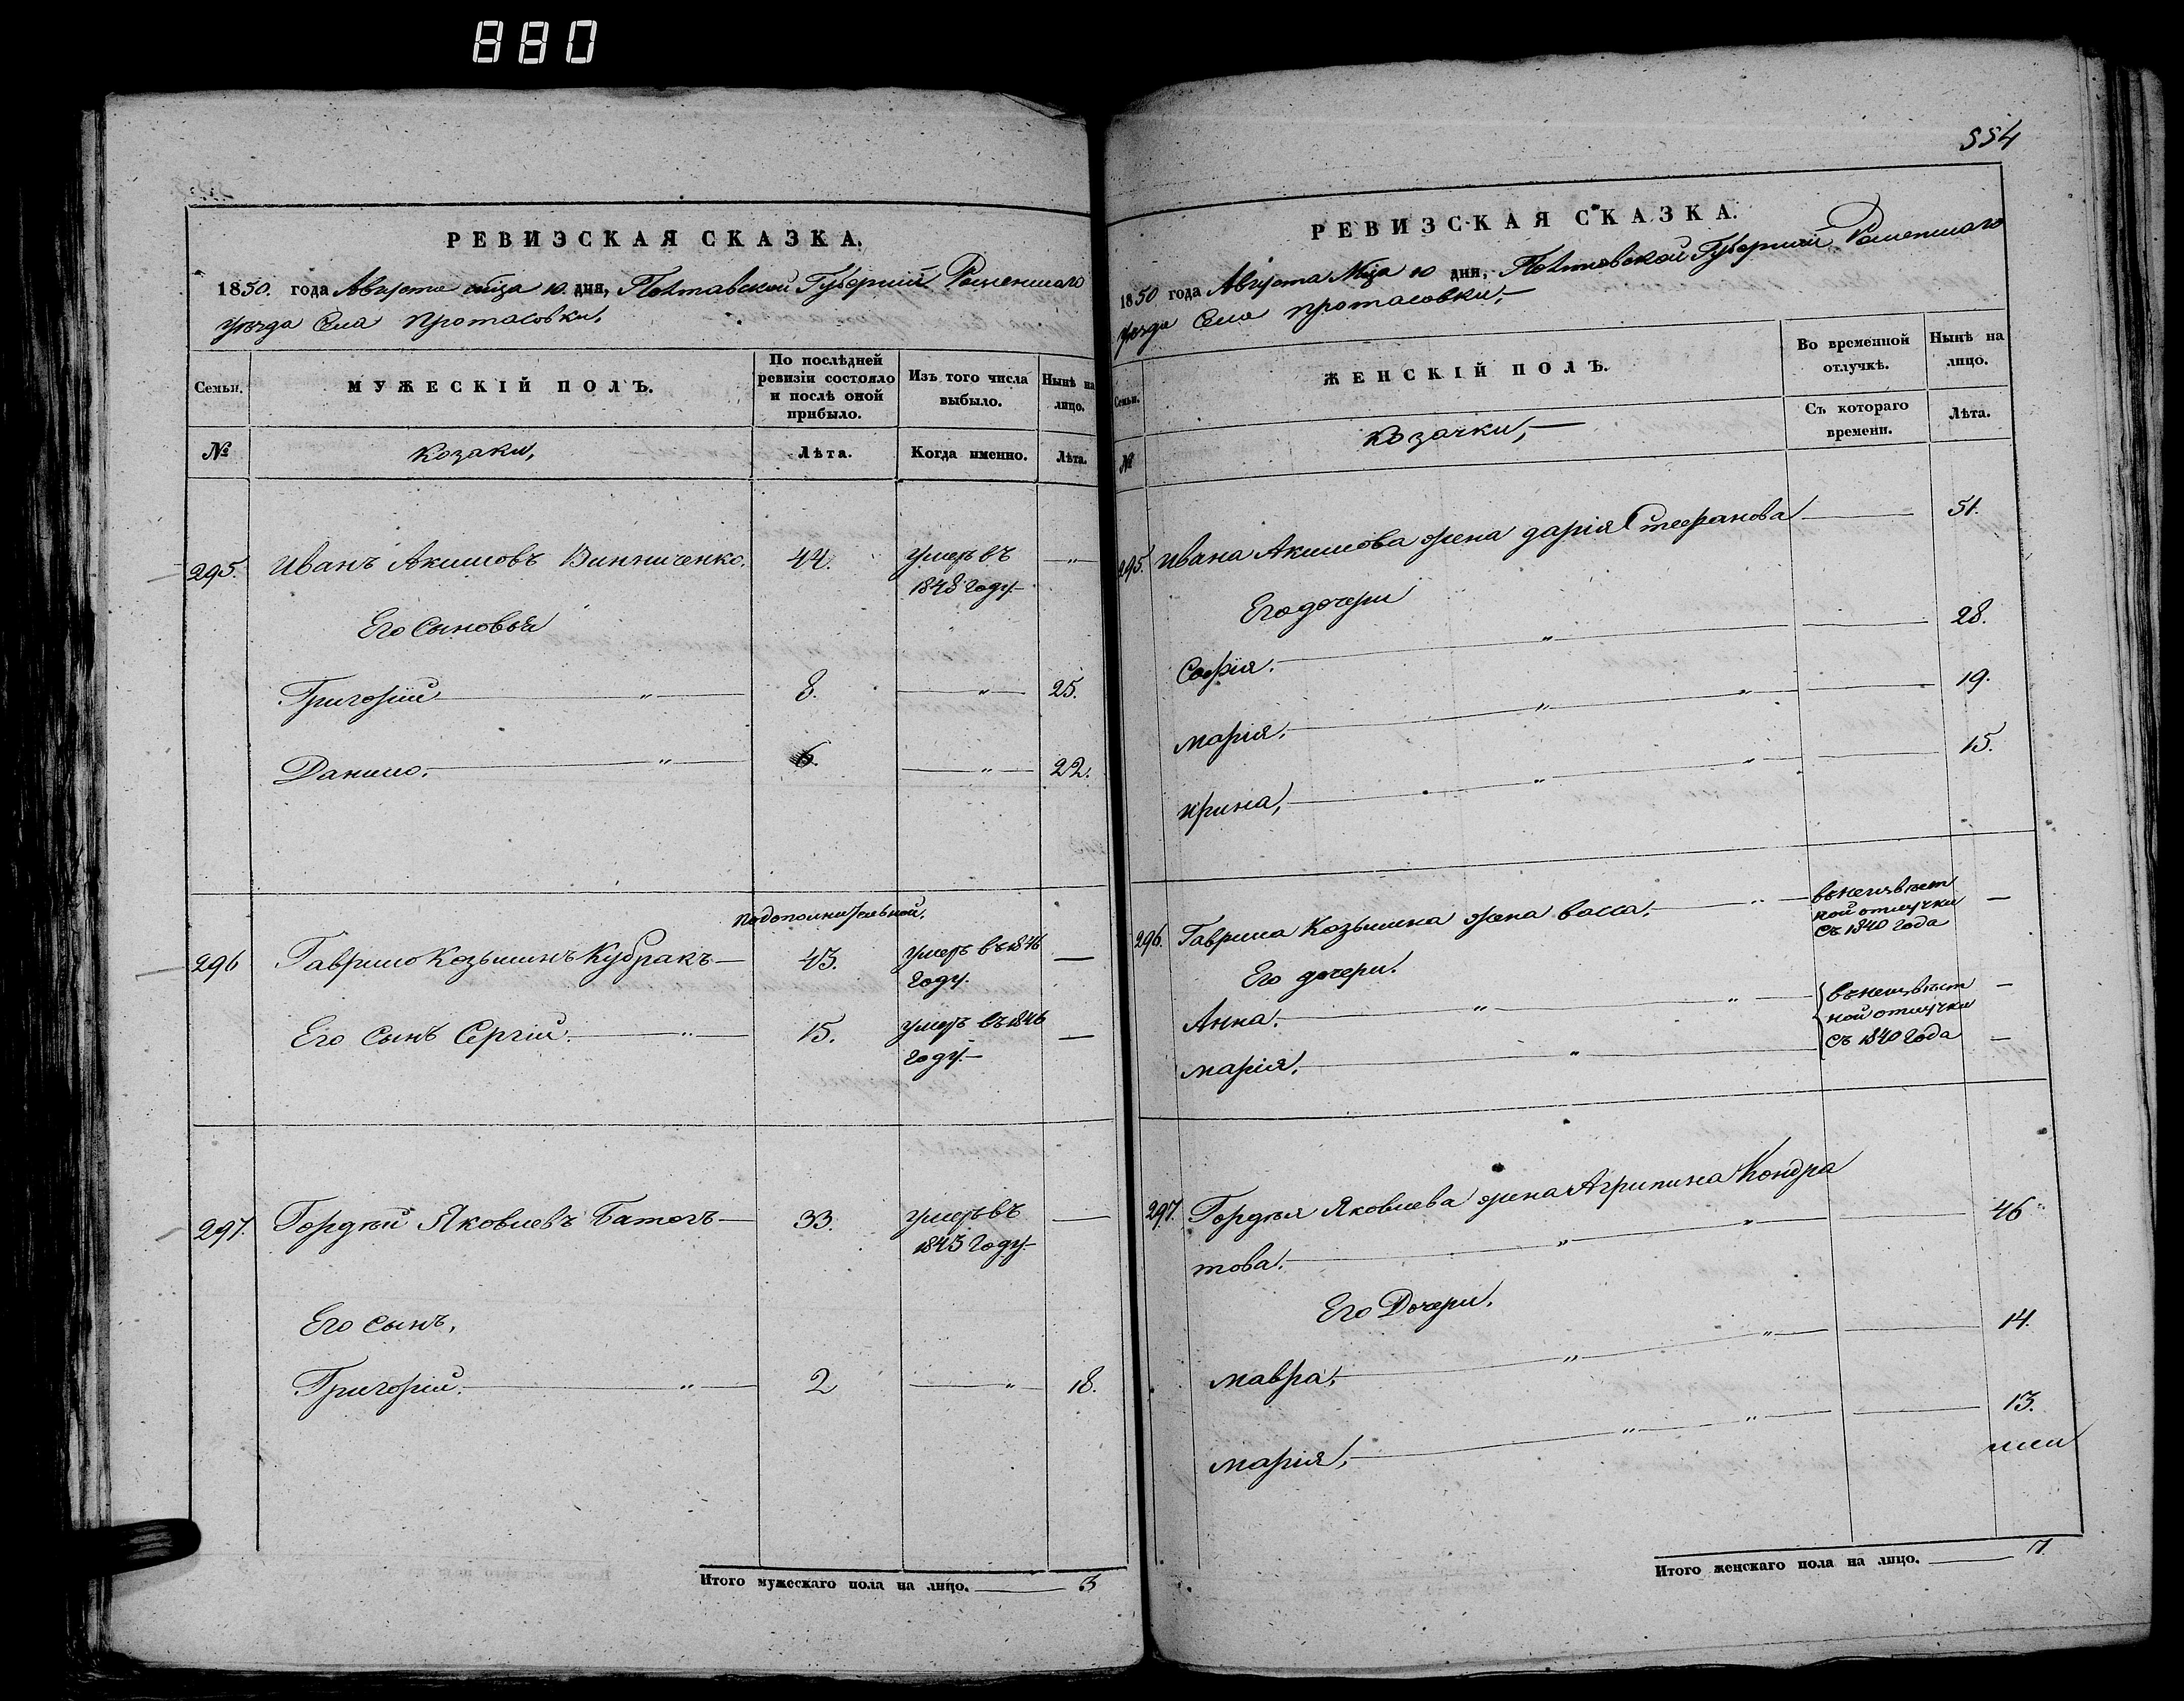 880
РЕВИЗСКАЯ СКАЗКА.
1850. года Августа мца 10 дня, Полтавской Губерніи Роменскаго
уезда Села Протасовки.
Семьи.
МУЖЕСКІЙ ПОЛЪ.
По послѣдней
ревизіи состояло
и послѣ оной
прибыло.
Изъ того числа
выбыло.
Нынѣ на
лицо.
№
Козаки,
Лѣта.
Когда именно.
Лѣта.
295. Иванъ Акимовъ Винниченко. 44. умеръ въ — „ —
1848 году. —
Его Сыновья
Григорій — „ — 8. — „ — 25.
Данило. — „ — 6. — „ — 22.
По дополнительной.
296 Гаврило Козьминъ Кубракъ — 45. умеръ въ 1846 —
году.
Его Сынъ Сергій. — „ — 15. умеръ въ 1846 —
году. —
297. Гордѣй Яковлевъ Батогъ — 33. умеръ въ —
1845 году. —
Его сынъ,
Григорій. — „ — 2 — „ — 18.
Итого мужескаго пола на лицо. — 3
554
РЕВИЗСКАЯ СКАЗКА.
1850 года Августа Мца 10 дня, Полтавской Губерніи Роменскаго
уезда Села Протасовки, —
Семьи.
ЖЕНСКІЙ ПОЛЪ.
Во временной
отлучкѣ.
Нынѣ на
лицо.
№
Козачки, —
Съ котораго
времени.
Лѣта.
295. Ивана Акимова жена дарія Стефанова — 51.
Его дочери
Софія. — „ — 28.
Марія. — „ — „ — 19.
Ирина, — „ — „ — 15.
296. Гаврила Козьмина жена васса. — „ — въ неизвѣст —
ной отлучки
съ 1840 года
Его дочери.
Анна. — „ — „ — въ неизвѣст —
ной отлучки
Марія. — „ — съ 1840 года —
297. Гордѣя Яковлева жена Агрипина Кондра
това. — „ — „ — 46
Его Дочери.
Мавра, — „ — „ — 14.
Марія, — „ — „ — 13.
Итого женскаго пола на лицо. — 7